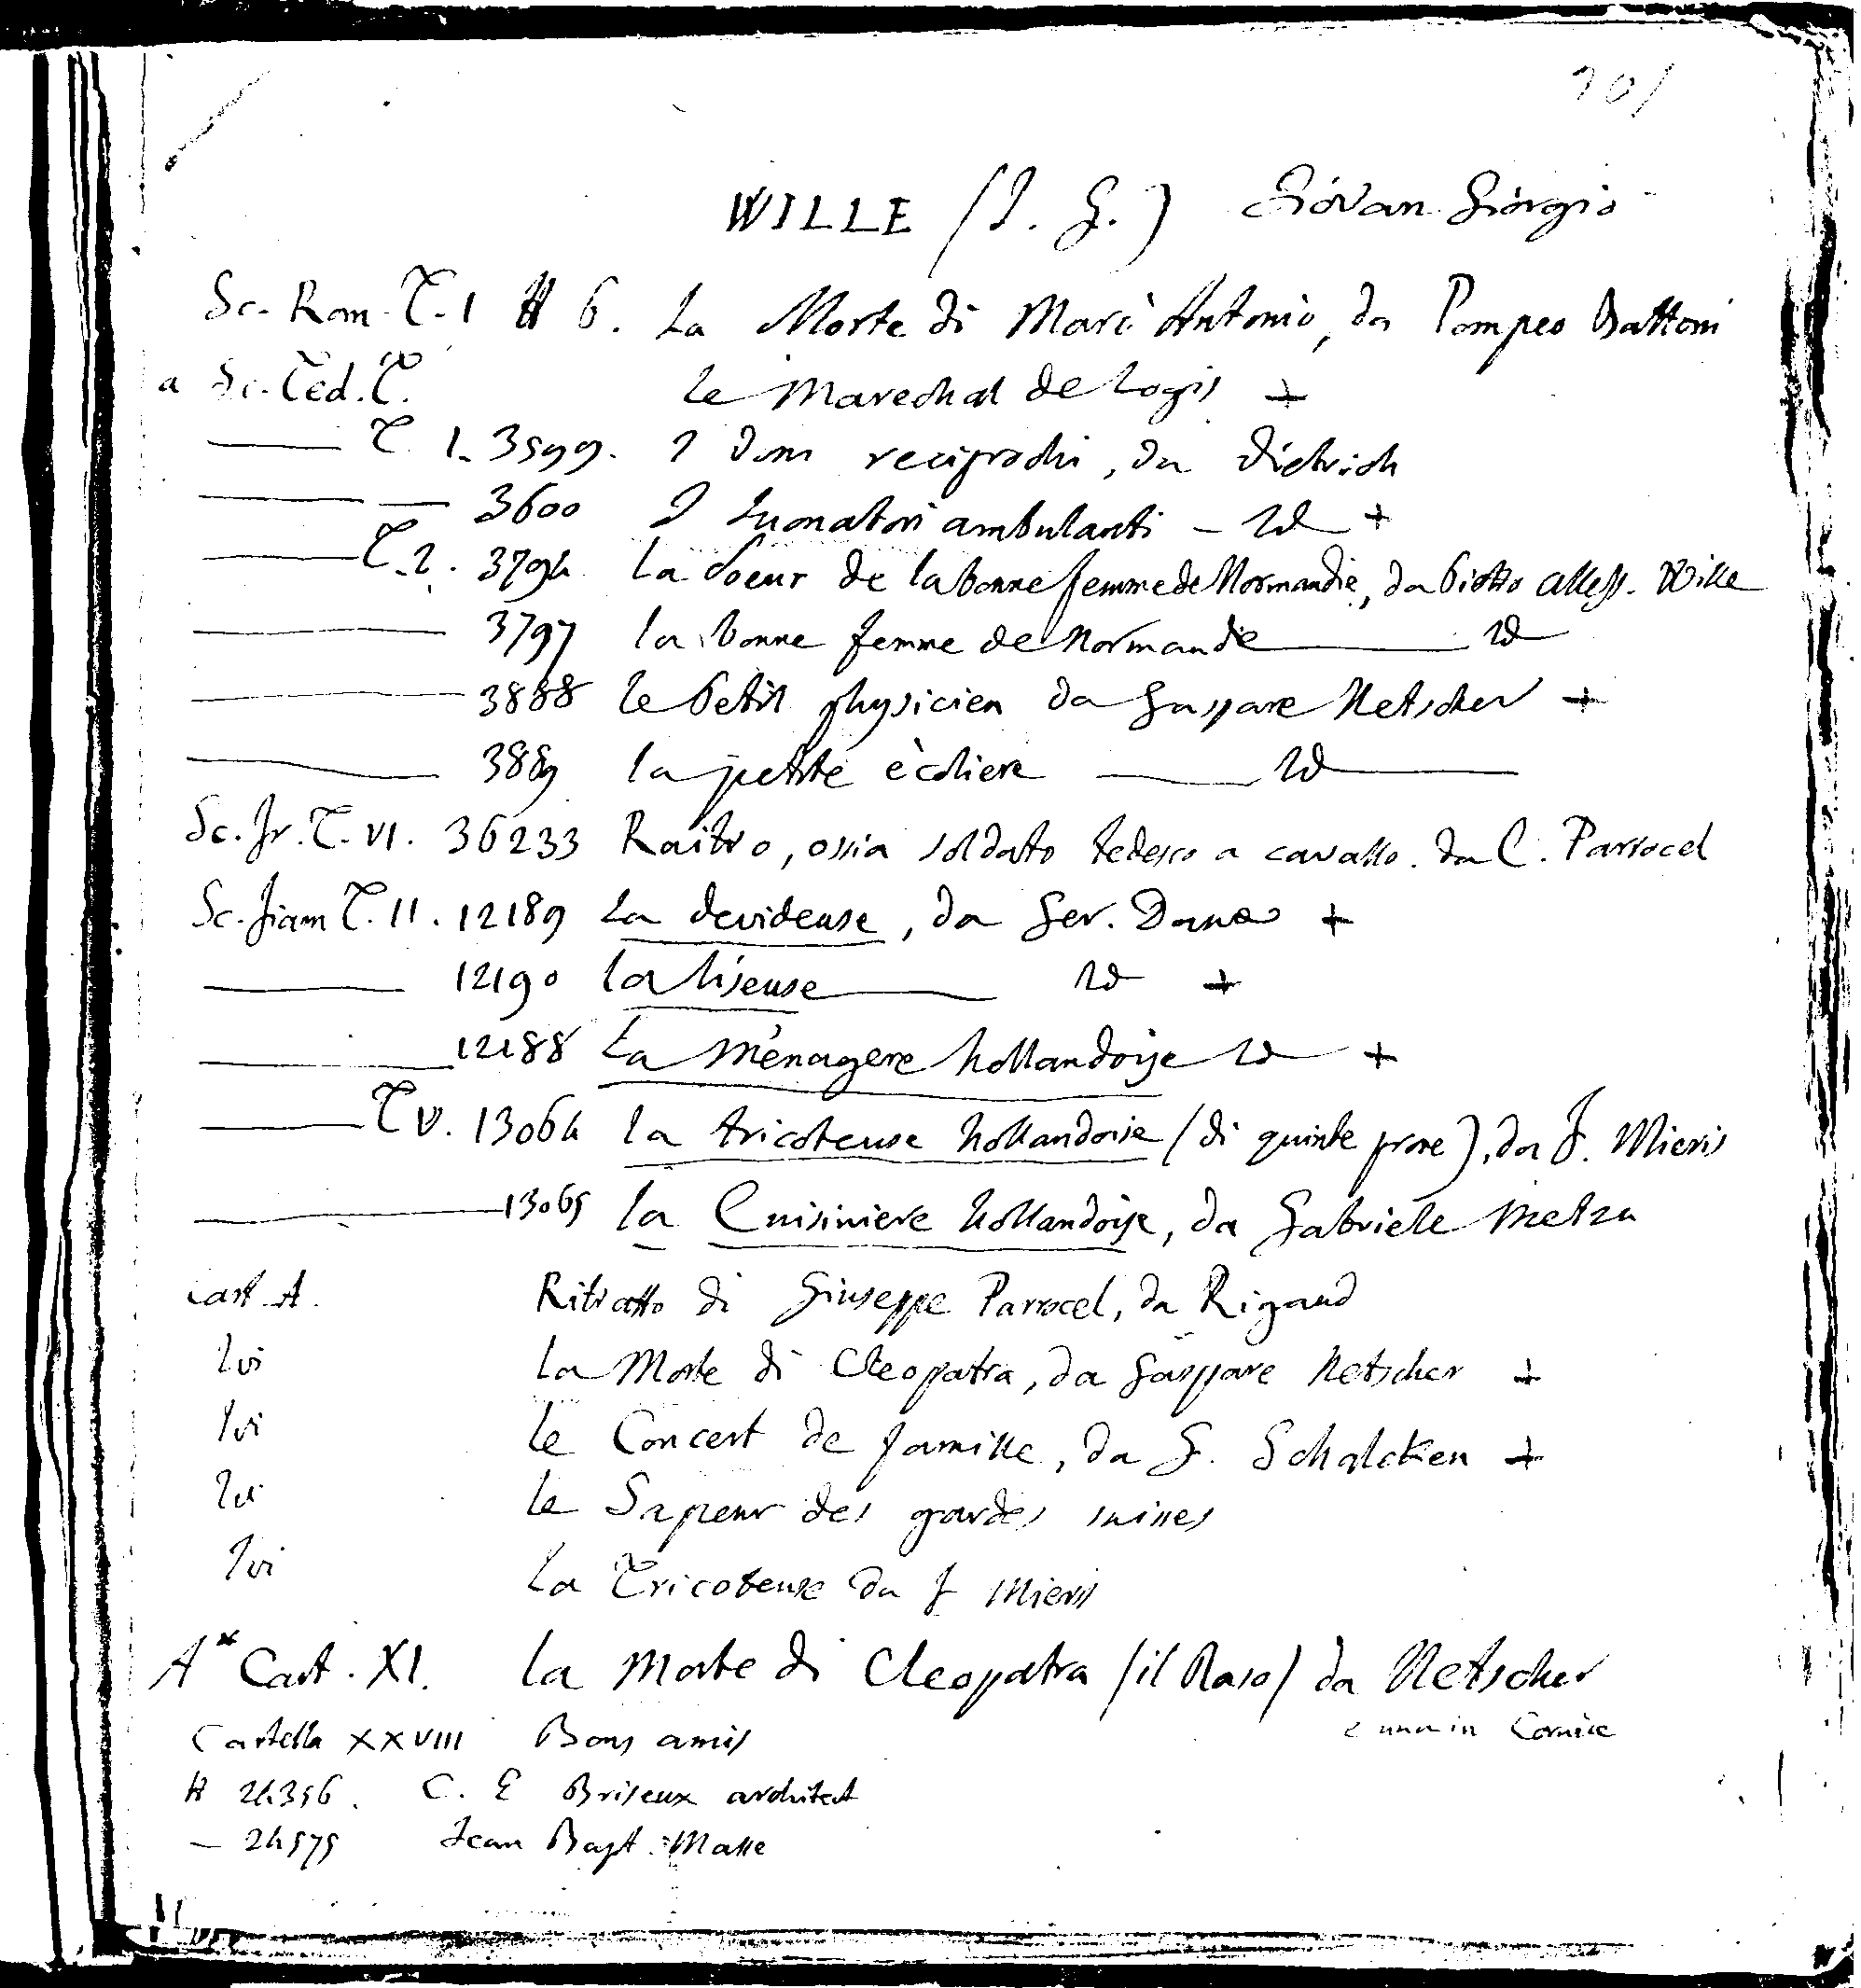 201
WILLE (J. G.) Giovan Giorgio
Sc. Rom. T. I # 6. La Morte di Marc' Antonio, da Pompeo Battoni
a Sc. Ted. T. Le Marechal de Logis +
—— T. I. 3599. I doni reciprochi, da Dietrich
—— — 3600 I Suonatori ambulanti – Id +
—— T. 2. 3794 La Soeur de la bonne femme de Normandie, da Pietro Aless. Wille
—— 3797 la bonne femme de Normandie —— Id
—— 3888 le Petit physicien da Gaspare Netscher +
—— 3889 la petite ècoliere —— Id ——
Sc. fr. T. VI. 36233 Raitro, ossia soldato tedesco a cavallo. da C. Parrocel
Sc. fiam T. II. 12189 La devideuse, da Ger. Douw +
—— 12190 la liseuse —— Id +
—— 12188 La Ménagere hollandoise Id +
—— T V. 13064 la tricoteuse hollandoise (di quinte prove), da F. Mieris
—— 13065 la Cuisiniere hollandoise, da Gabriele Metzu
Cart. A. Ritratto di Giuseppe Parrocel, da Rigaud
Ivi La Morte di Cleopatra, da Gaspare Netscher +
Ivi Le Concert de famille, da G. Schalcken +
Ivi le Sapeur des gardes suisses
Ivi La Tricoteuse da F Mieris
A* Cart. XI. La Morte di Cleopatra (il Raso) da Netscher
e una in Cornice
Cartella XXVIII Bons amis
# 24356. C. E Briseux architect
— 24575 Jean Bapt. Masse